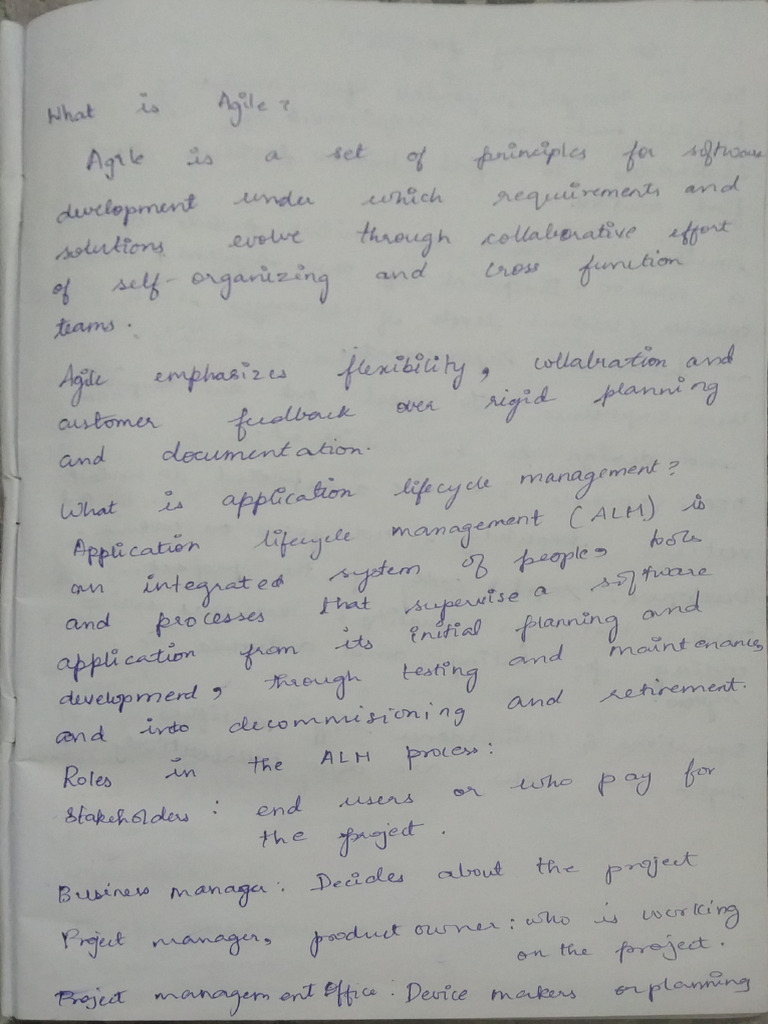 What is Agile?
Agile is a set of principles for software
development under which requirements and
solutions evolve through collaborative effort
of self-organizing and cross function
teams.
Agile emphasizes flexibility, collabration and
customer feedback over rigid planning
and documentation.
What is application lifecycle management?
Application lifecycle management (ALM) is
an integrated system of people, tools
and processes that supervise a software
application from its initial planning and
development, through testing and maintenance,
and into decommisioning and retirement.
Roles in the ALM process:
Stakeholders: end users or who pay for
the project.
Business manager: Decides about the project
Project manager, product owner: who is working
on the project.
Project management Office: Device makers or planning